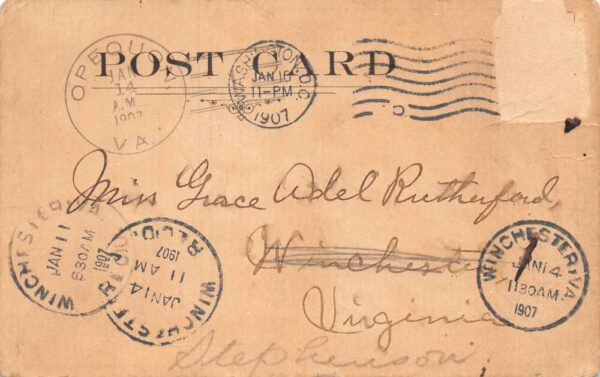 POST CARD
OPEQUON
JAN
14
A.M.
1907
VA.
WASHINGTON, D.C.
JAN 10
11-PM
1907
C
Miss Grace Adel Rutherford,
Winchester,
Virginia
Stephenson
WINCHESTER, VA
JAN 11
630AM
1907
REC'D.
WINCHESTER
REC'D.
1907
11 AM
JAN 14
WINCHESTER, VA.
JAN 14
1130AM.
1907